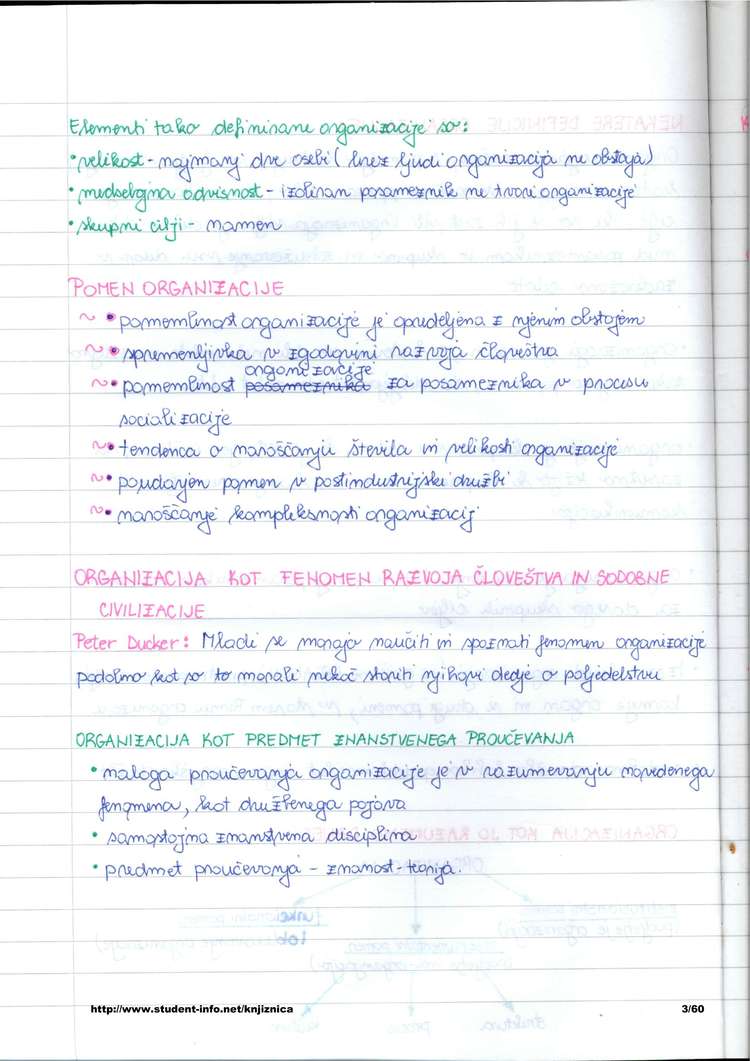 Elementi tako definirane organizacije so:
• velikost - najmanj dve osebi (brez ljudi organizacija ne obstaja)
• medsebojna odvisnost - izoliran posameznik ne tvori organizacije
• skupni cilji - namen
POMEN ORGANIZACIJE
~ • pomembnost organizacije je opredeljena z njenim obstojem
~ • spremenljivka v zgodovini razvoja človeštva
organizacije
~ • pomembnost posameznika za posameznika v procesu
socializacije
~ • tendenca o naraščanju števila in velikosti organizacije
~ • poudarjen pomen v postindustrijski družbi
~ • naraščanje kompleksnosti organizacij
ORGANIZACIJA KOT FENOMEN RAZVOJA ČLOVEŠTVA IN SODOBNE
CIVILIZACIJE
Peter Ducker: Mladi se morajo naučiti in spoznati fenomen organizacije
podobno kot so to morali nekoč storiti njihovi dedje o poljedelstvu
ORGANIZACIJA KOT PREDMET ZNANSTVENEGA PROUČEVANJA
• naloga proučevanja organizacije je v razumevanju navedenega
fenomena, kot družbenega pojava
• samostojna znanstvena disciplina
• predmet proučevanja - znanost - teorija.
http://www.student-info.net/knjiznica 3/60